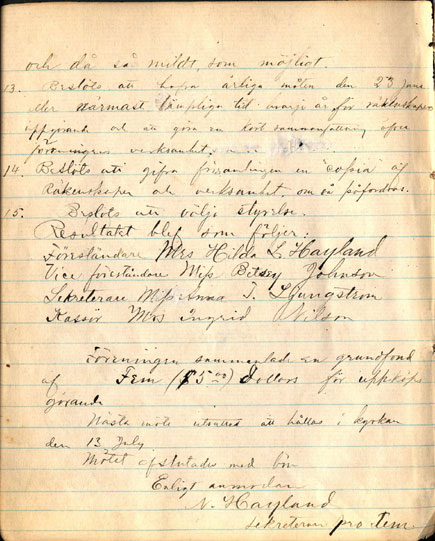 och då så mildt, som möjligt.
13. Beslöts att hafva årliga möten den 23 June
eller närmast lämpliga tid hvarje år, för räkenskapers
uppgörande och att göra en kort sammanfattning öfver
föreningens verksamhet.
14. Beslöts att gifva församlingen en "copia" af
Räkenskaper och verksamhet om så påfordras.
15. Beslöts att välja styrelse.
Resultatet blef som följer:
Föreståndare Mrs Hilda L. Hayland
Vice föreståndare Miss Betsey Johnson
Sekreterare Miss Anna T. Ljungstrom
Kassör Mrs Ingrid Nilson
Föreningen sammanlade en grundfond
af Fem ($5.00) Dollors för uppköps
görande
Nästa möte utsattes att hållas i kyrkan
den 13 July
Mötet afslutades med bön
Enligt anmodan
N. Hayland
Sekreterare pro tem